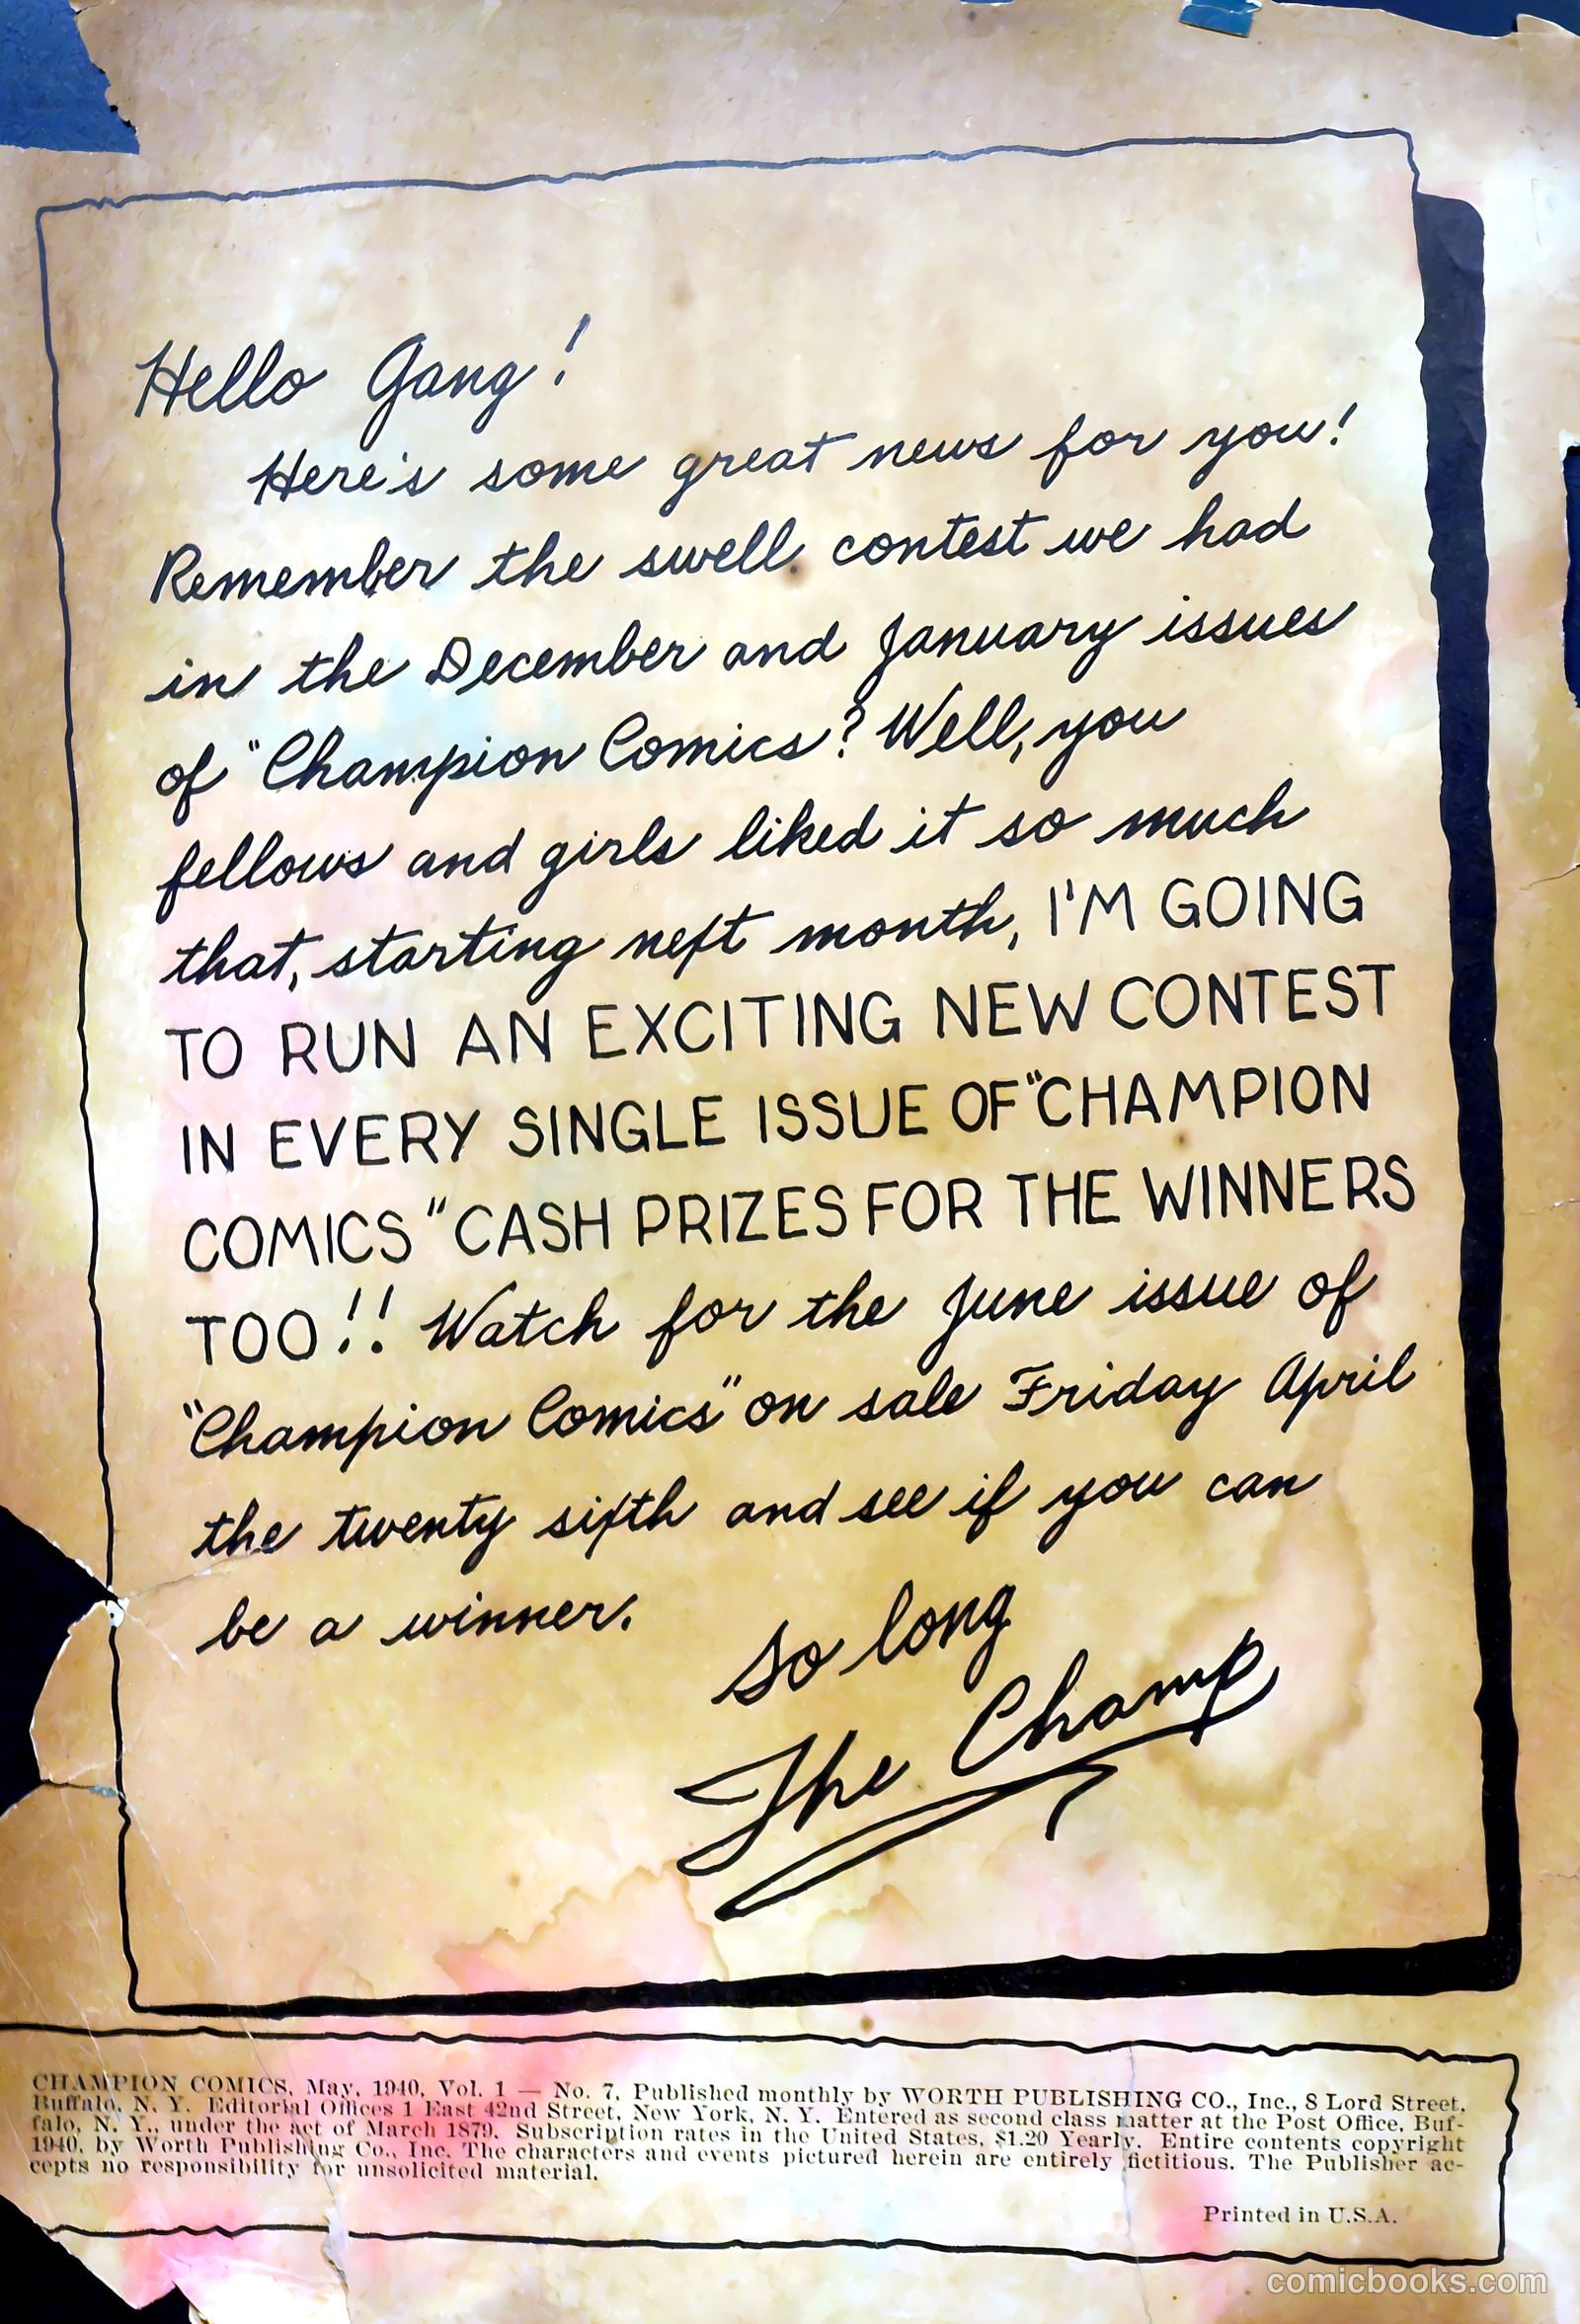 Hello Gang!
Here's some great news for you!
Remember the swell contest we had
in the December and January issues
of "Champion Comics? Well, you
fellows and girls liked it so much
that, starting next month, I'M GOING
TO RUN AN EXCITING NEW CONTEST
IN EVERY SINGLE ISSUE OF "CHAMPION
COMICS" CASH PRIZES FOR THE WINNERS
TOO!! Watch for the June issue of
"Champion Comics" on sale Friday April
the twenty sixth and see if you can
be a winner.
So long
The Champ
CHAMPION COMICS, May, 1940, Vol. 1 — No. 7, Published monthly by WORTH PUBLISHING CO., Inc., 8 Lord Street,
Buffalo, N. Y. Editorial Offices 1 East 42nd Street, New York, N. Y. Entered as second class matter at the Post Office, Buf-
falo, N. Y., under the act of March 1879. Subscription rates in the United States, $1.20 Yearly. Entire contents copyright
1940, by Worth Publishing Co., Inc. The characters and events pictured herein are entirely fictitious. The Publisher ac-
cepts no responsibility for unsolicited material.
Printed in U.S.A.
comicbooks.com